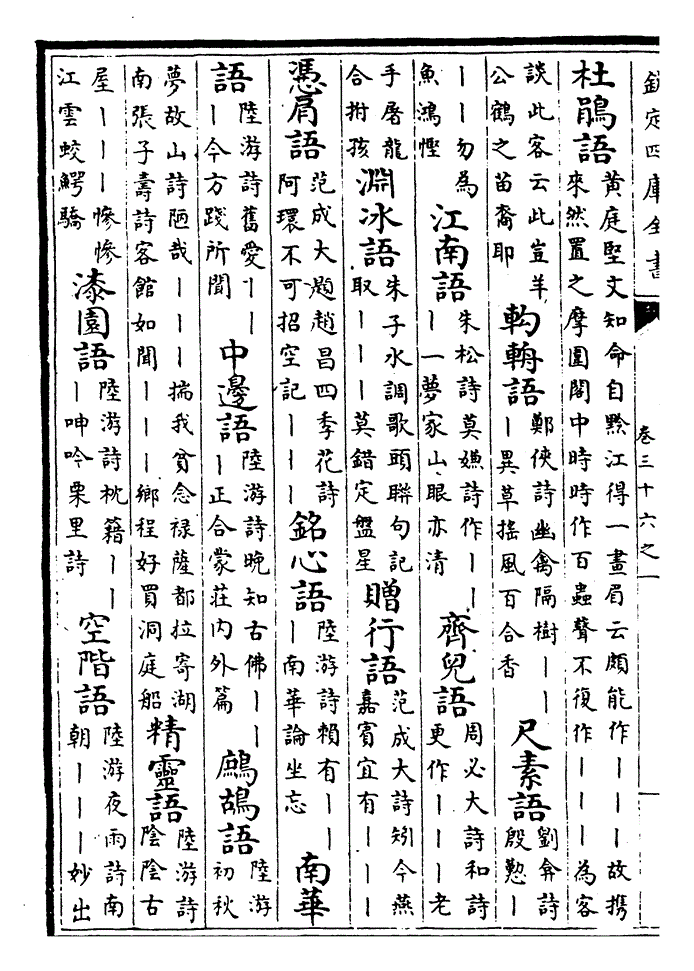 欽定四庫全書
卷三十六之一
杜鵑語
黄庭堅文知命自黔江得一晝眉云頗能作丨丨丨故攜
來然置之摩圍閣中時時作百蟲聲不復作丨丨丨為客
談此客云此豈羊
公鶴之苗裔耶
軥輈語
鄭俠詩幽禽隔樹丨丨
丨異草搖風百合香
尺素語
劉弇詩
殷懃丨
丨丨勿為
魚鴻慳
江南語
朱松詩莫嫌詩作丨丨
丨一夢家山眼亦清
齊兒語
周必大詩和詩
更作丨丨丨老
手屠龍
合拊孩
淵冰語
朱子水調歌頭聯句記
取丨丨丨莫錯定盤星
贈行語
范成大詩矧今燕
嘉賓宜有丨丨丨
憑肩語
范成大題趙昌四季花詩
阿環不可招空記丨丨丨
銘心語
陸游詩賴有丨丨
丨南華論坐忘
南華
語
陸游詩舊愛丨丨
丨今方踐所聞
中邊語
陸游詩晚知古佛丨丨
丨正合蒙莊内外篇
鷓鴣語
陸游
初秋
夢故山詩陋哉丨丨丨揣我貧念禄薩都拉寄湖
南張子壽詩客館如聞丨丨丨鄉程好買洞庭船
精靈語
陸游詩
陰陰古
屋丨丨丨慘慘
江雲蛟鱷驕
漆園語
陸游詩枕籍丨丨
丨呻吟栗里詩
空階語
陸游夜雨詩南
朝丨丨丨妙出